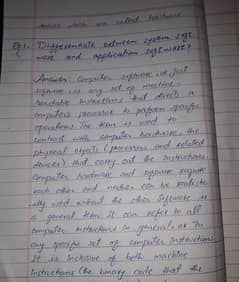 which are called hardware
Q1. Differentiate between system soft
ware and application software?
Answer: Computer software or just
software is any set of machine
readable instructions that directs a
computer's processor to perform specific
operations. The term is used to
contrast with computer hardware, the
physical objects (processors and related
devices) that carry out the instructions.
Computer hardware and software require
each other and neither can be realistic
ally used without the other. Software is
a general term. It can refer to all
computer instructions in general or
any specific set of computer instructions.
It is inclusive of both machine
instructions (the binary code that the